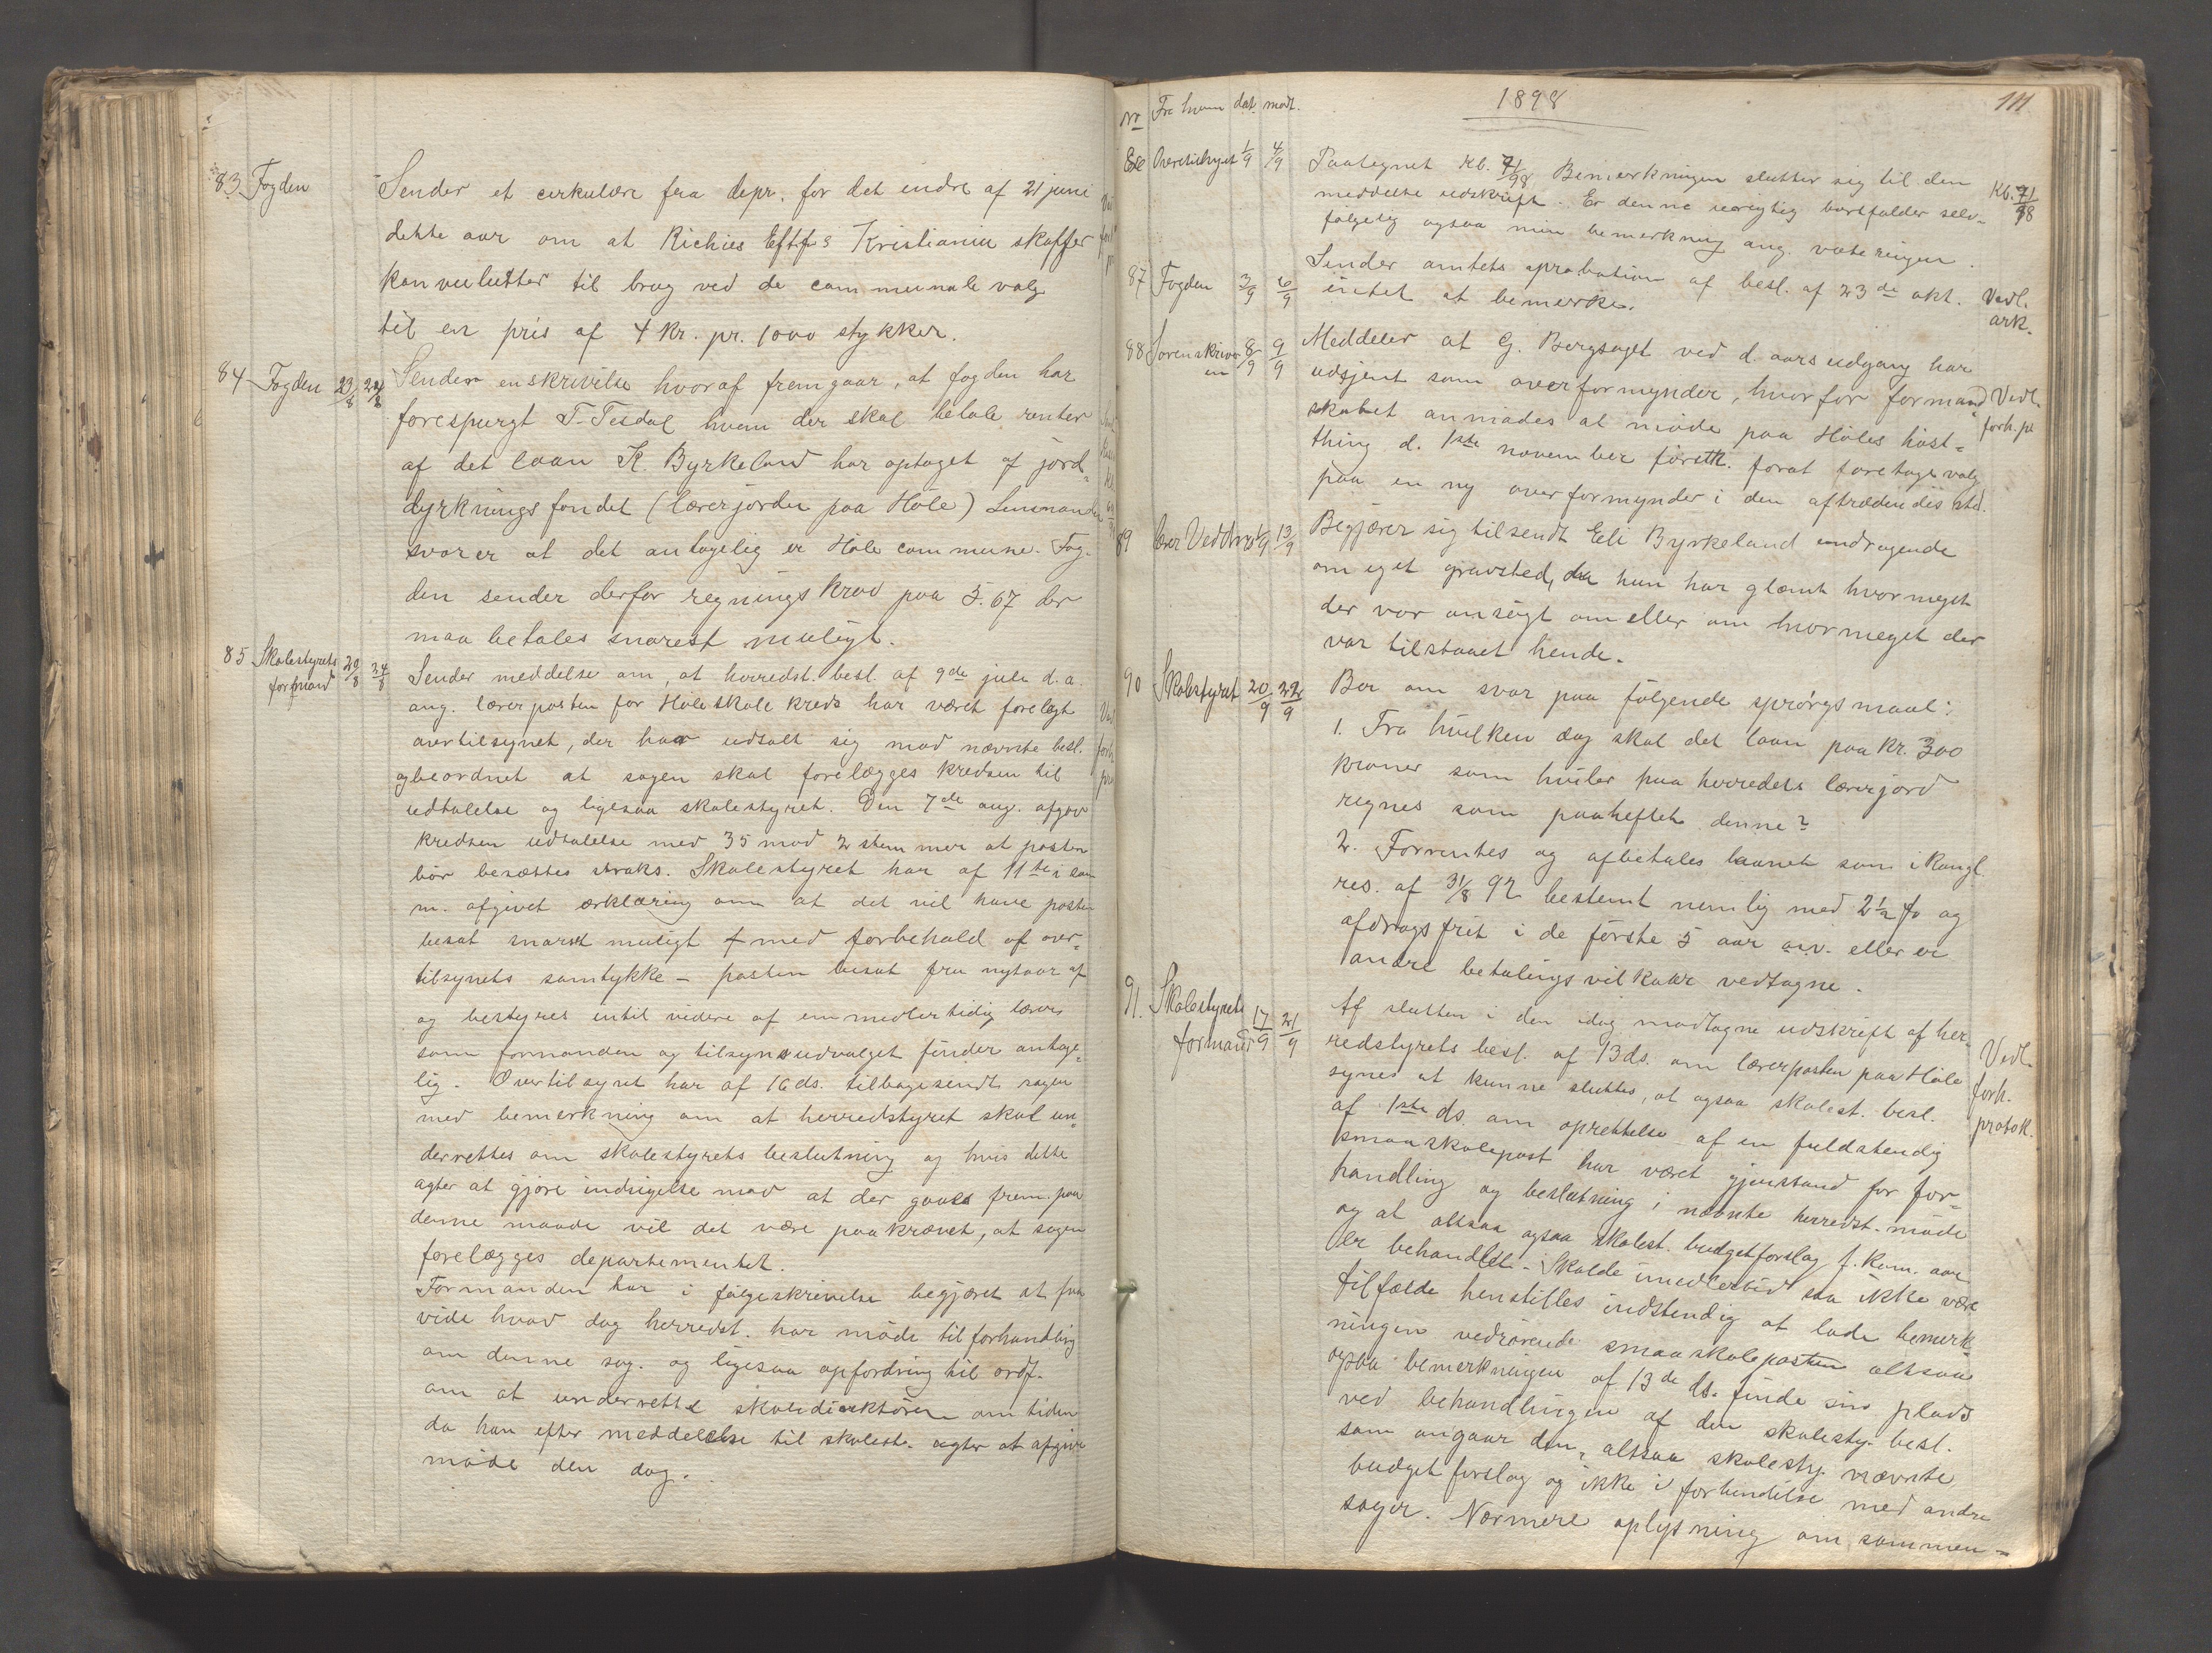 83 Fogden
Sender et cirkulære fra depr. for det indre af 21 juni
dette aar om at Richies Eftf.s Kristiania skaffer
konvulutter til brug ved de communale valg
til en pris af 4 Kr. pr. 1000 stykker.
84 Fogden 23/8 24/8
Sender en skrivelse hvoraf fremgaar, at fogden har
forespurgt T. Tesdal hvem der skal betale renter
af det laan K. Byrkeland har optaget af jord-
dyrkningsfondet (lærerjorden paa Höle) Lensmanden
svarer at det antagelig er Höle commune. Fog-
den sender derfor regningskrav paa 5.67 der
maa betales snarest muligt.
85 Skolestyrets formand 20/8 24/8
Sender meddelse om, at herredst. besl. af 9de juli d.a.
ang. lærerposten for Höle skolekreds har været forelagt
overtilsynet, der har udtalt sig mod nævnte besl.
og beordret at sagen skal forelægges kredsen til
udtalelse og ligesaa skolestyret. Den 7de aug. afgav
kredsen udtalelse med 35 mod 2 stemmer at posten
bör besættes straks. Skolestyret har af 11te i sam
m. afgivet erklæring om at det vil have posten
besat snarest muligt + med forbehold af over-
tilsynets samtykke – posten besat fra nytaar af
og bestyres intil videre af en midlertidig lærer
som formanden og tilsynsudvalget finder antage-
lig. Overtilsynet har af 16 ds. tilbagesendt sagen
med bemerkning om at herredstyret skal un-
derrettes om skolestyrets beslutning og hvis dette
agter at gjöre indsigelse mod at der gaaes frem paa
denne maade vil det være paakrævet, at sagen
forelægges departementet.
Formanden har i fölgeskrivelse begjæret at faa
vide hvad dag herredst. har möde til forhandling
om denne sag. og ligesaa opfordring til ordf.
om at underrette skoledirektören om tiden
da han efter meddelelse til skolest. agter at afgive
möde den dag.
No Fra hvem dat. modt. 1898 111
86 Overtilsynet 1/9 4/9
Paategnet Kb. 71/98 Bemerkningen slutter sig til den Kb. 71/98
meddelte udskrift. Er denne urigtig bortfalder selv-
fölgelig ogsaa min bemerkning ang. voteringen.
87 Fogden 3/9 6/9
Sender amtets aprobation af besl. af 23de okt. Vedl.
intet at bemerke. ark.
88 Sorenskriveren 8/9 9/9
Meddeler at G. Bergsagel ved d. aars udgang har
udtjent som overformynder, hvorfor formand- Vedl.
skabet anmodes at möde paa Höles höst- forh.pr
thing d. 1ste november förstk. forat foretage valg
paa en ny overformynder i den aftrædendes sted.
89 13/9
Begjærer sig tilsendt Eli Byrkeland andragende
om eget gravsted, da hun har glemt hvormeget
der var ansögt om eller om hvormeget der
var tilstaaet hende.
90 Skolestyret 20/9 22/9
Ber om svar paa fölgende spörgsmaal:
1. Fra hvilken dag skal det laan paa Kr. 300
kroner som hviler paa herredets lærerjord
regnes som paaheftet denne?
2. Forrentes og afbetales laanet som i Kongl.
res. af 31/8 92 bestemt nemlig med 2 1/2 % og
afdragsfrit i de förste 5 aar o.s.v. eller er
andre betalingsvilkaar vedtagne.
91. Skolestyrets formand 17/9 21/9
Af slutten i den idag modtagne udskrift af her-
redstyrets besl. af 13 ds. om lærerposten paa Höle Vedl.
synes at kunne sluttes, at ogsaa skolest. besl. forh.
af 1ste ds. om oprettelse af en fuldstendig protok.
smaaskolepost har været gjenstand for for-
handling og beslutning i nævnte herredst. möde
og at altsaa ogsaa skolest. budgetforslag f. kom. aar
er behandlet. – Skulde imedlertid saa ikke være
tilfælde henstilles indstendig at lade bemerk-
ningen vedrörende smaaskoleposten altsaa
ogsaa bemerkningen af 13de ds. finde sin plads
ved behandlingen af den skolesty. besl.
som angaar den, altsaa skolesty. nævnte
budgetforslag og ikke i forbindelse med andre
sager. Nærmere oplysning om sammen-